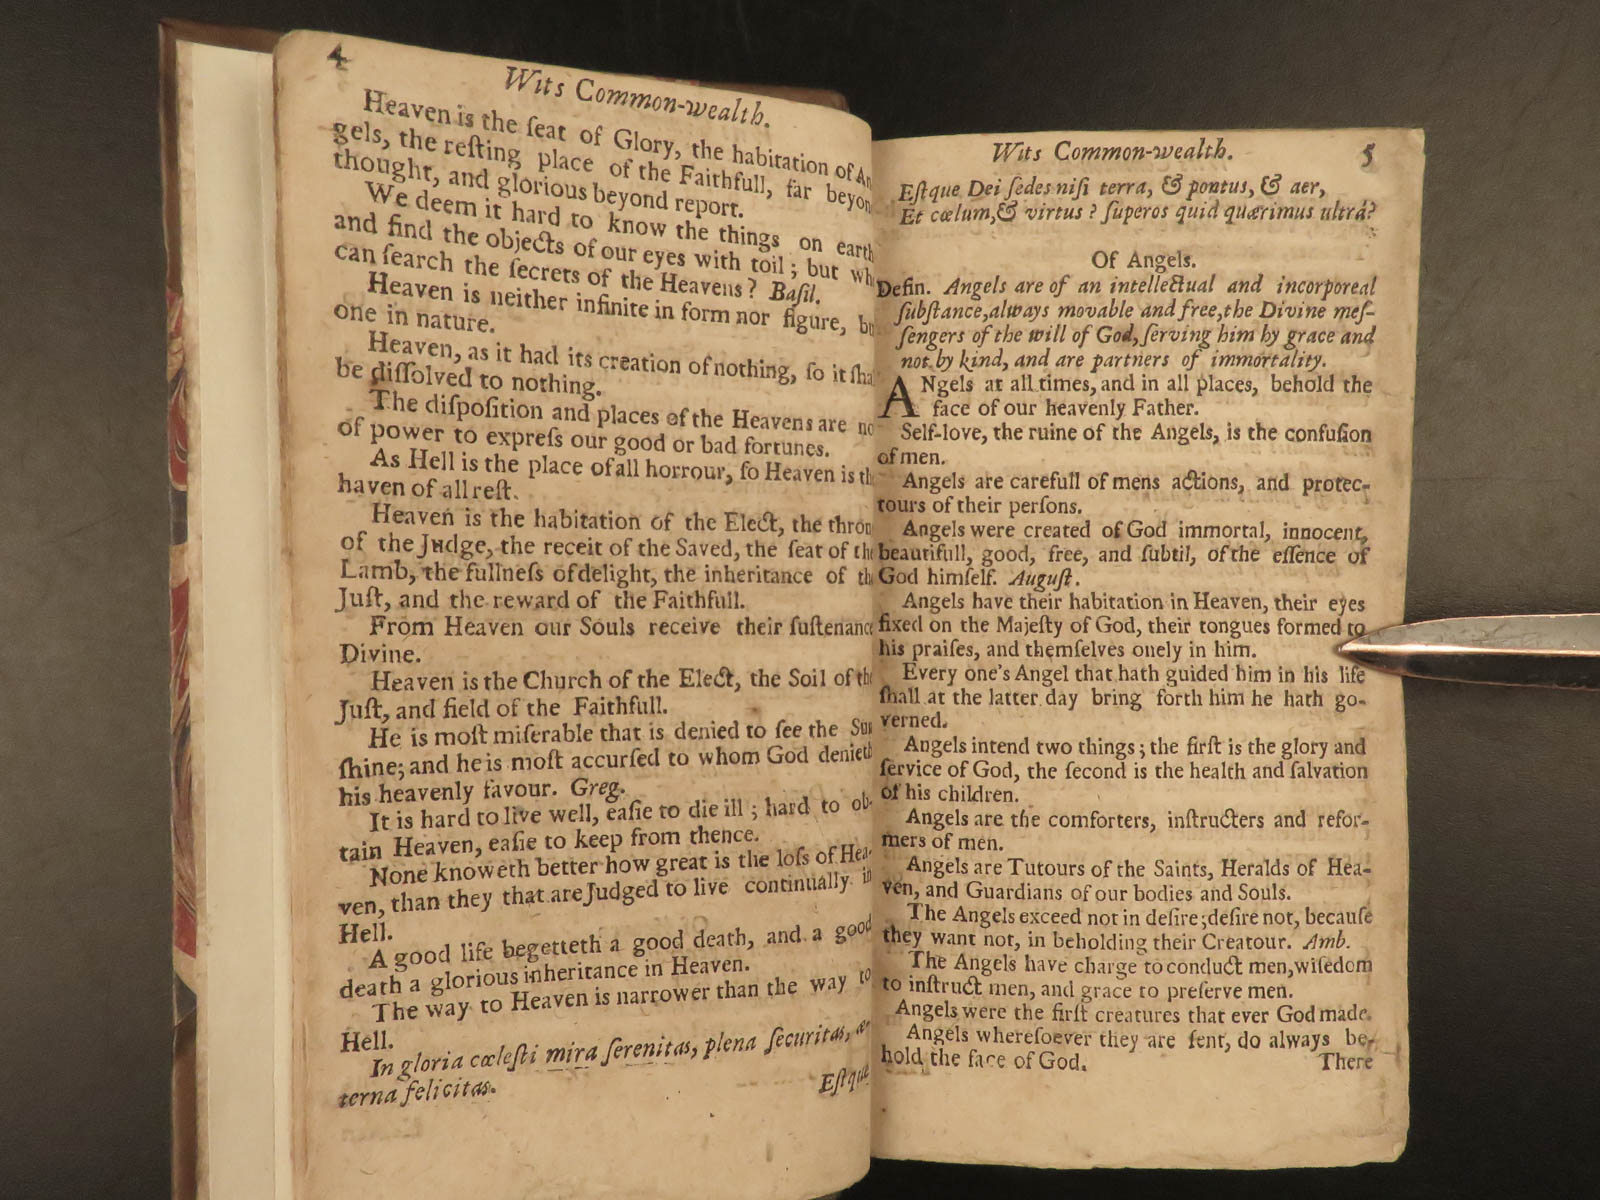 4
Wits Common-wealth.
Heaven is the ſeat of Glory, the habitation of An
gels, the reſting place of the Faithfull, far beyon
thought, and glorious beyond report.
We deem it hard to know the things on earth
and find the objects of our eyes with toil; but wh
can ſearch the ſecrets of the Heavens? Baſil.
Heaven is neither infinite in form nor figure, bu
one in nature.
Heaven, as it had its creation of nothing, ſo it ſha
be diſſolved to nothing.
The diſpoſition and places of the Heavens are no
of power to expreſs our good or bad fortunes.
As Hell is the place of all horrour, ſo Heaven is th
haven of all reſt.
Heaven is the habitation of the Elect, the thron
of the Judge, the receit of the Saved, the ſeat of the
Lamb, the fullneſs of delight, the inheritance of th
Juſt, and the reward of the Faithfull.
From Heaven our Souls receive their ſuſtenance
Divine.
Heaven is the Church of the Elect, the Soil of the
Juſt, and field of the Faithfull.
He is moſt miſerable that is denied to ſee the Sun
ſhine; and he is moſt accurſed to whom God denieth
his heavenly favour. Greg.
It is hard to live well, eaſie to die ill; hard to ob-
tain Heaven, eaſie to keep from thence.
None knoweth better how great is the loſs of Hea-
ven, than they that are Judged to live continually in
Hell.
A good life begetteth a good death, and a good
death a glorious inheritance in Heaven.
The way to Heaven is narrower than the way to
Hell.
In gloria cœleſti mira ſerenitas, plena ſecuritas, æ-
terna felicitas.
Eſtque
Wits Common-wealth. 5
Eſtque Dei ſedes niſi terra, & pontus, & aer,
Et cœlum,& virtus? ſuperos quid quærimus ultrá?
Of Angels.
Defin. Angels are of an intellectual and incorporeal
ſubſtance,always movable and free,the Divine meſ-
ſengers of the will of God, ſerving him by grace and
not by kind, and are partners of immortality.
ANgels at all times, and in all places, behold the
face of our heavenly Father.
Self-love, the ruine of the Angels, is the confuſion
of men.
Angels are carefull of mens actions, and protec-
tours of their perſons.
Angels were created of God immortal, innocent,
beautifull, good, free, and ſubtil, of the eſſence of
God himſelf. Auguſt.
Angels have their habitation in Heaven, their eyes
fixed on the Majeſty of God, their tongues formed to
his praiſes, and themſelves onely in him.
Every one's Angel that hath guided him in his life
ſhall at the latter day bring forth him he hath go-
verned.
Angels intend two things; the firſt is the glory and
ſervice of God, the ſecond is the health and ſalvation
of his children.
Angels are the comforters, inſtructers and refor-
mers of men.
Angels are Tutours of the Saints, Heralds of Hea-
ven, and Guardians of our bodies and Souls.
The Angels exceed not in deſire;deſire not, becauſe
they want not, in beholding their Creatour. Amb.
The Angels have charge to conduct men,wiſedom
to inſtruct men, and grace to preſerve men.
Angels were the firſt creatures that ever God made.
Angels whereſoever they are ſent, do always be-
hold the face of God.
There